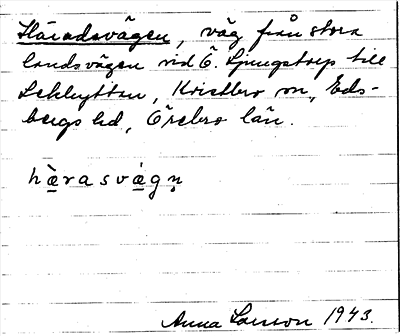 Häradsvägen, väg från stora
landsvägen vid Ö. Ljungstorp till
Lekhyttan, Kvistbro sn, Eds-
bergs hd, Örebro län.
hæ̀rasvæ̀gn̥
Anna Larsson 1943.